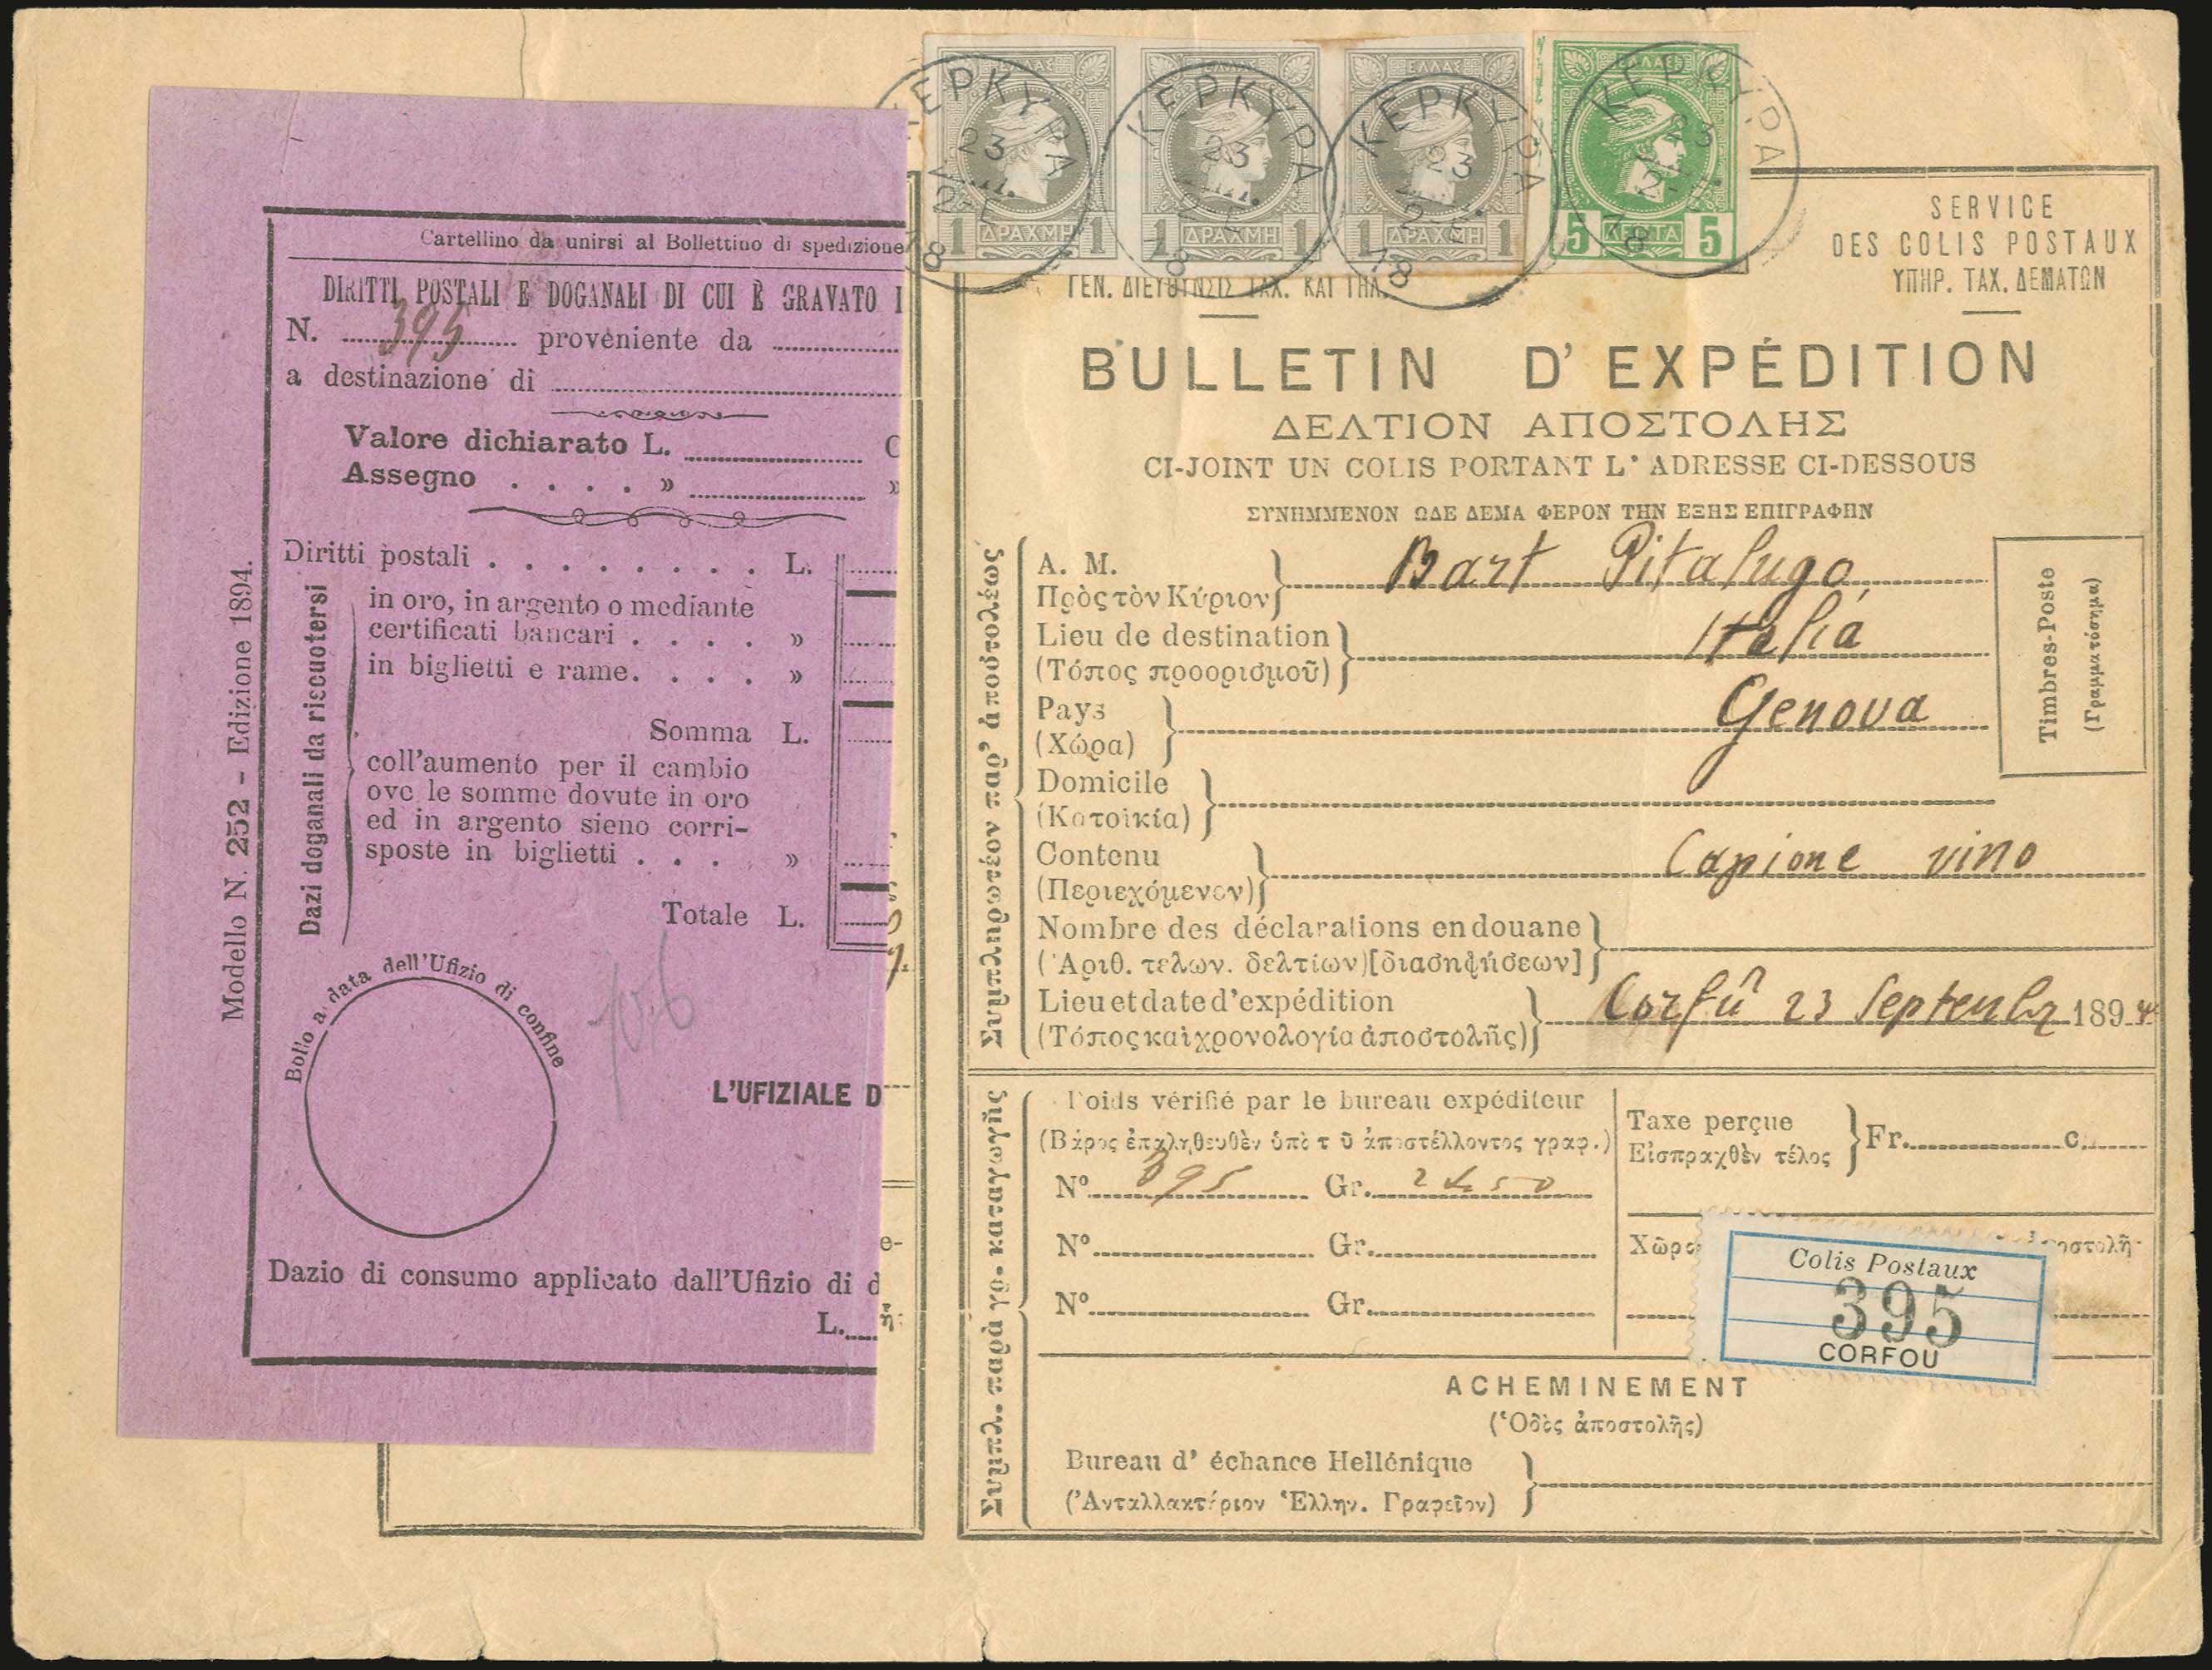 Cartellino da unirsi al Bollettino di spedizione
DIRITTI POSTALI E DOGANALI DI CUI È GRAVATO I
N. 395 proveniente da
a destinazione di
Valore dichiarato L. C
Assegno . . . . » »
Diritti postali . . . . . . . . L.
Dazi doganali da riscuotersi
in oro, in argento o mediante
certificati bancari . . . . »
in biglietti e rame. . . . . »
Somma L.
coll'aumento per il cambio
ove le somme dovute in oro
ed in argento sieno corri-
sposte in biglietti . . . »
Totale L.
Modello N. 252 - Edizione 1894.
Bollo a data dell'Ufizio di confine
L'UFIZIALE D
Dazio di consumo applicato dall'Ufizio di d
L.
ΕΛΛΑΣ
1 ΔΡΑΧΜΗ 1
ΚΕΡΚΥΡΑ
23
ΕΛΛΑΣ
1 ΔΡΑΧΜΗ 1
ΚΕΡΚΥΡΑ
23
ΕΛΛΑΣ
1 ΔΡΑΧΜΗ 1
ΚΕΡΚΥΡΑ
23
ΕΛΛΑΣ
5 ΛΕΠΤΑ 5
ΚΕΡΚΥΡΑ
23
ΓΕΝ. ΔΙΕΥΘΥΝΣΙΣ ΤΑΧ. ΚΑΙ ΤΗΛ.
SERVICE
DES COLIS POSTAUX
ΥΠΗΡ. ΤΑΧ. ΔΕΜΑΤΩΝ
BULLETIN D'EXPÉDITION
ΔΕΛΤΙΟΝ ΑΠΟΣΤΟΛΗΣ
CI-JOINT UN COLIS PORTANT L'ADRESSE CI-DESSOUS
ΣΥΝΗΜΜΕΝΟΝ ΩΔΕ ΔΕΜΑ ΦΕΡΟΝ ΤΗΝ ΕΞΗΣ ΕΠΙΓΡΑΦΗΝ
Συμπληρωτέον παρ' ἀποστολέως
A. M. Bart Pitalugo
Πρὸς τὸν Κύριον
Lieu de destination Italia
(Τόπος προορισμοῦ)
Pays Genova
(Χώρα)
Timbres-Poste
(Γραμματόσημα)
Domicile
(Κατοικία)
Contenu Capione vino
(Περιεχόμενον)
Nombre des déclarations en douane
(Ἀριθ. τελων. δελτίων)[διασαφήσεων]
Lieu et date d'expédition Corfù 23 Septembr 1894
(Τόπος καὶ χρονολογία ἀποστολῆς)
Συμπλ. παρὰ γρ. καταγωγῆς
Poids vérifié par le bureau expéditeur
(Βάρος ἐπαληθευθὲν ὑπὸ τοῦ ἀποστέλλοντος γραφ.)
Nº 395 Gr. 2450
Nº Gr.
Nº Gr.
Taxe perçue Fr. c.
Εἰσπραχθὲν τέλος
Colis Postaux
395
CORFOU
ACHEMINEMENT
(Ὁδὸς ἀποστολῆς)
Bureau d' échance Hellénique
(Ἀνταλλακτήριον Ἑλλην. Γραφεῖον)